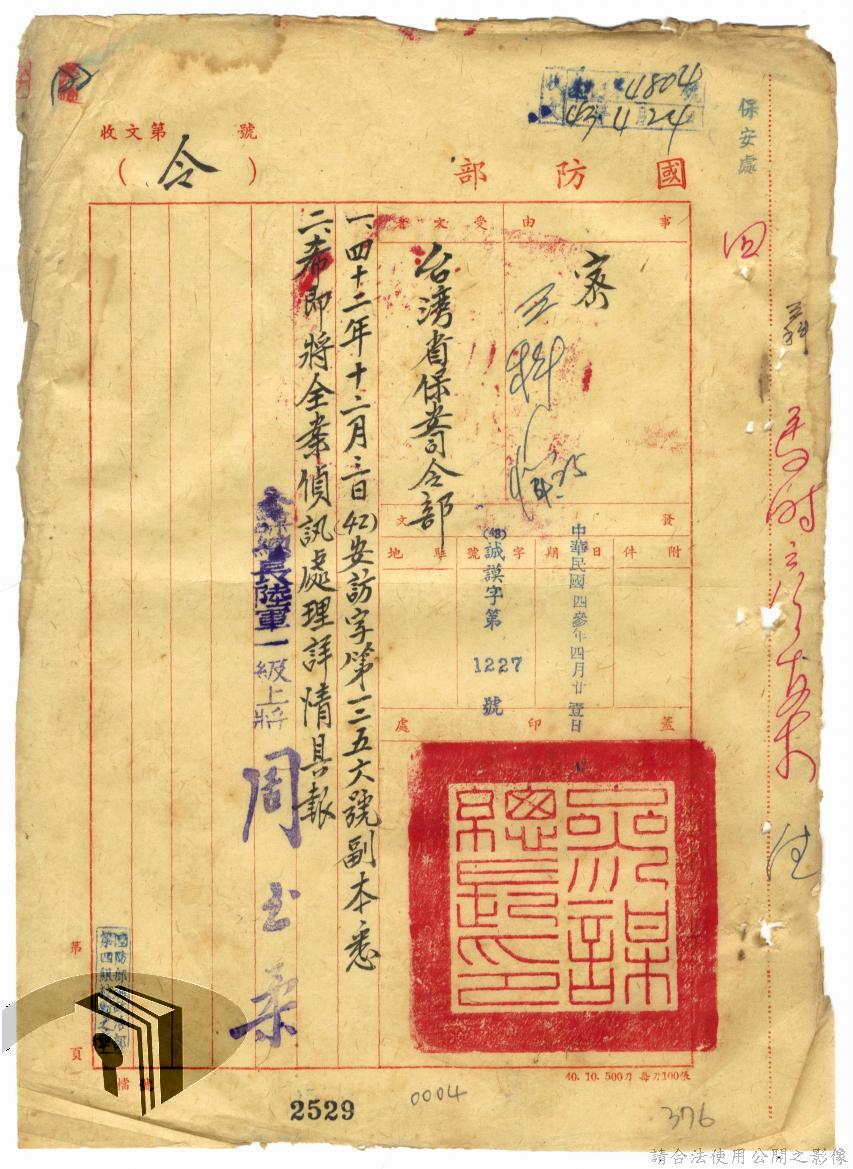 保安處
4804
43 4 24
收文第 號
國防部
（令）
事由
受文者
密
台灣省保安司令部
附件
發文
日期
字號
駐地
中華民國四參年四月廿壹日
(43)誠謨字第1227號
蓋印處
參謀總長印
一、四十二年十二月三日(42)安訪字第一三五六號副本悉
二、希即將全案偵訊處理詳情具報
參謀總長陸軍一級上將 周至柔
第 頁
檔號
40.10.500刀 每刀100張
2529
0004
376
請合法使用公開之影像